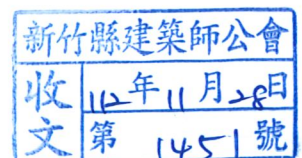 新竹縣建築師公會
收文
112年11月28日
第1451號